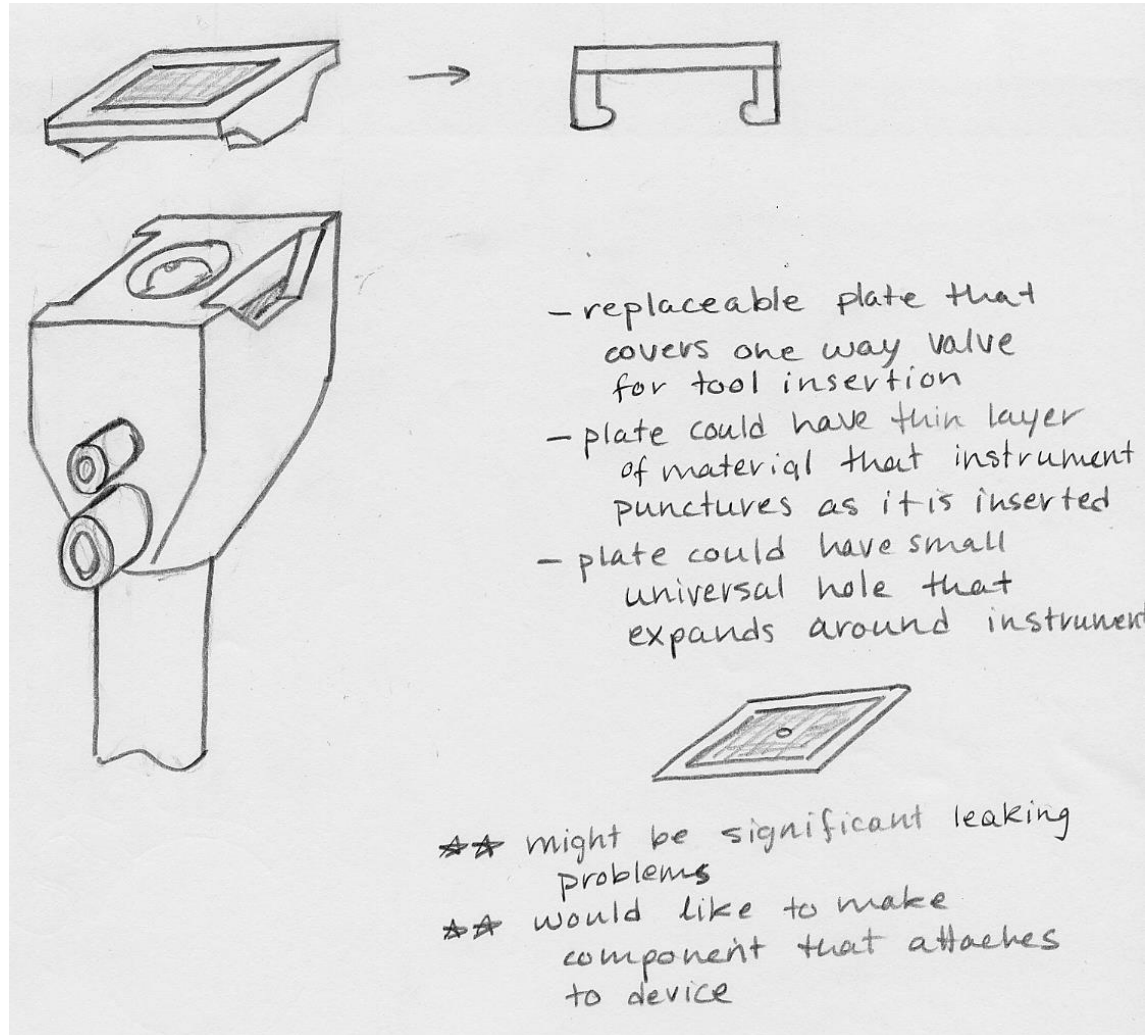 - replaceable plate that
covers one way valve
for tool insertion
- plate could have thin layer
of material that instrument
punctures as it is inserted
- plate could have small
universal hole that
expands around instrument
☆☆ might be significant leaking
problems
☆☆ would like to make
component that attaches
to device